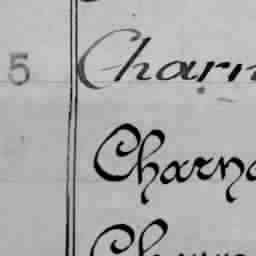 5 Charn
Charna